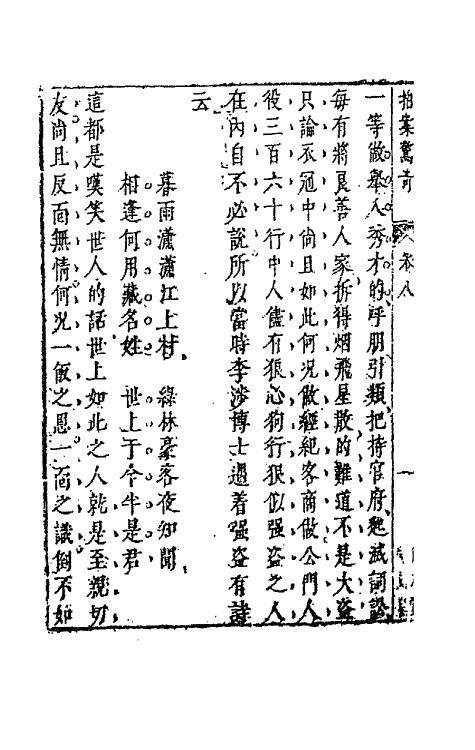 拍案驚奇 卷八 一
一等做舉人秀才的呼朋引類把持官府起滅詞訟
每有將良善人家拆得烟飛星散的難道不是大盜
只論衣冠中尚且如此何况做經紀客商做公門人
役三百六十行中人儘有狠心狗行狠似强盜之人
在內自不必說所以當時李涉博士遇着强盜有詩
云
暮雨瀟瀟江上村 綠林豪客夜知聞
相逢何用藏名姓 世上于今半是君
這都是嘆笑世人的話世上如此之人就是至親切
友尚且反面無情何况一飯之恩一面之識倒不如